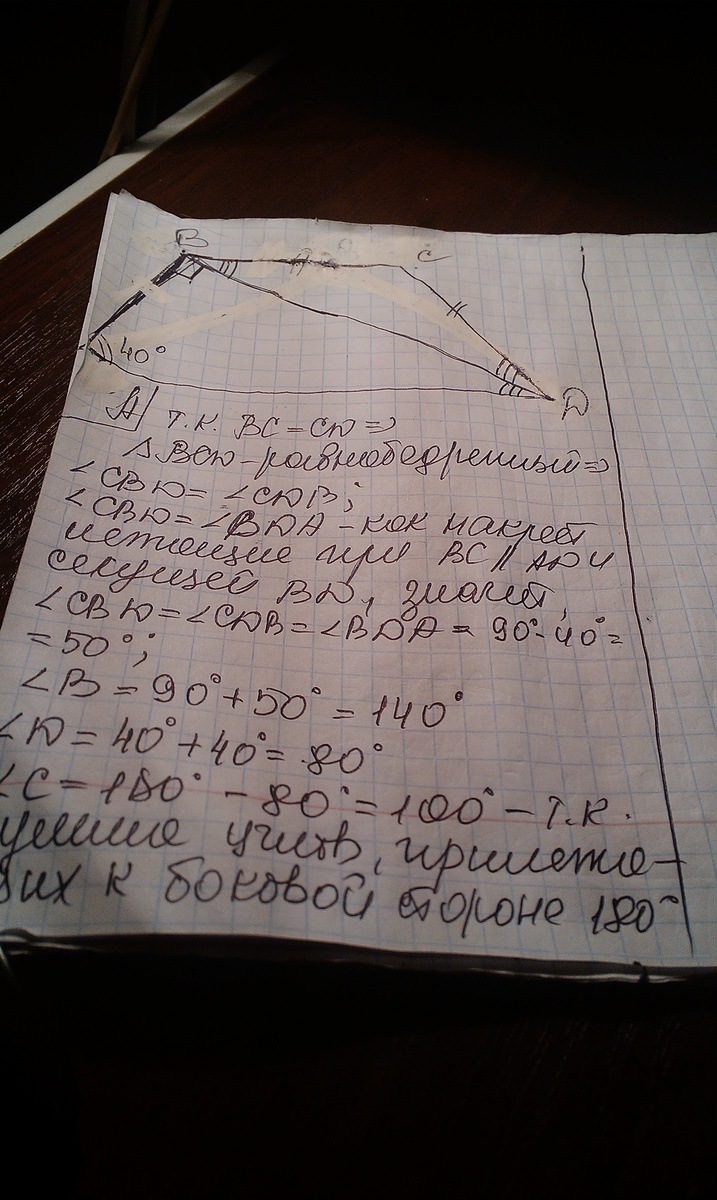 B C
40°
A D
т.к. BC = CD ⇒
Δ BCD - равнобедренный ⇒
∠CBD = ∠CDB;
∠CBD = ∠BDA - как накрест
лежащие при BC || AD и
секущей BD, значит,
∠CBD = ∠CDB = ∠BDA = 90° - 40° =
= 50°;
∠B = 90° + 50° = 140°
∠D = 40° + 40° = 80°
∠C = 180° - 80° = 100° - т.к.
углов, прилежа-
их к боковой стороне 180°